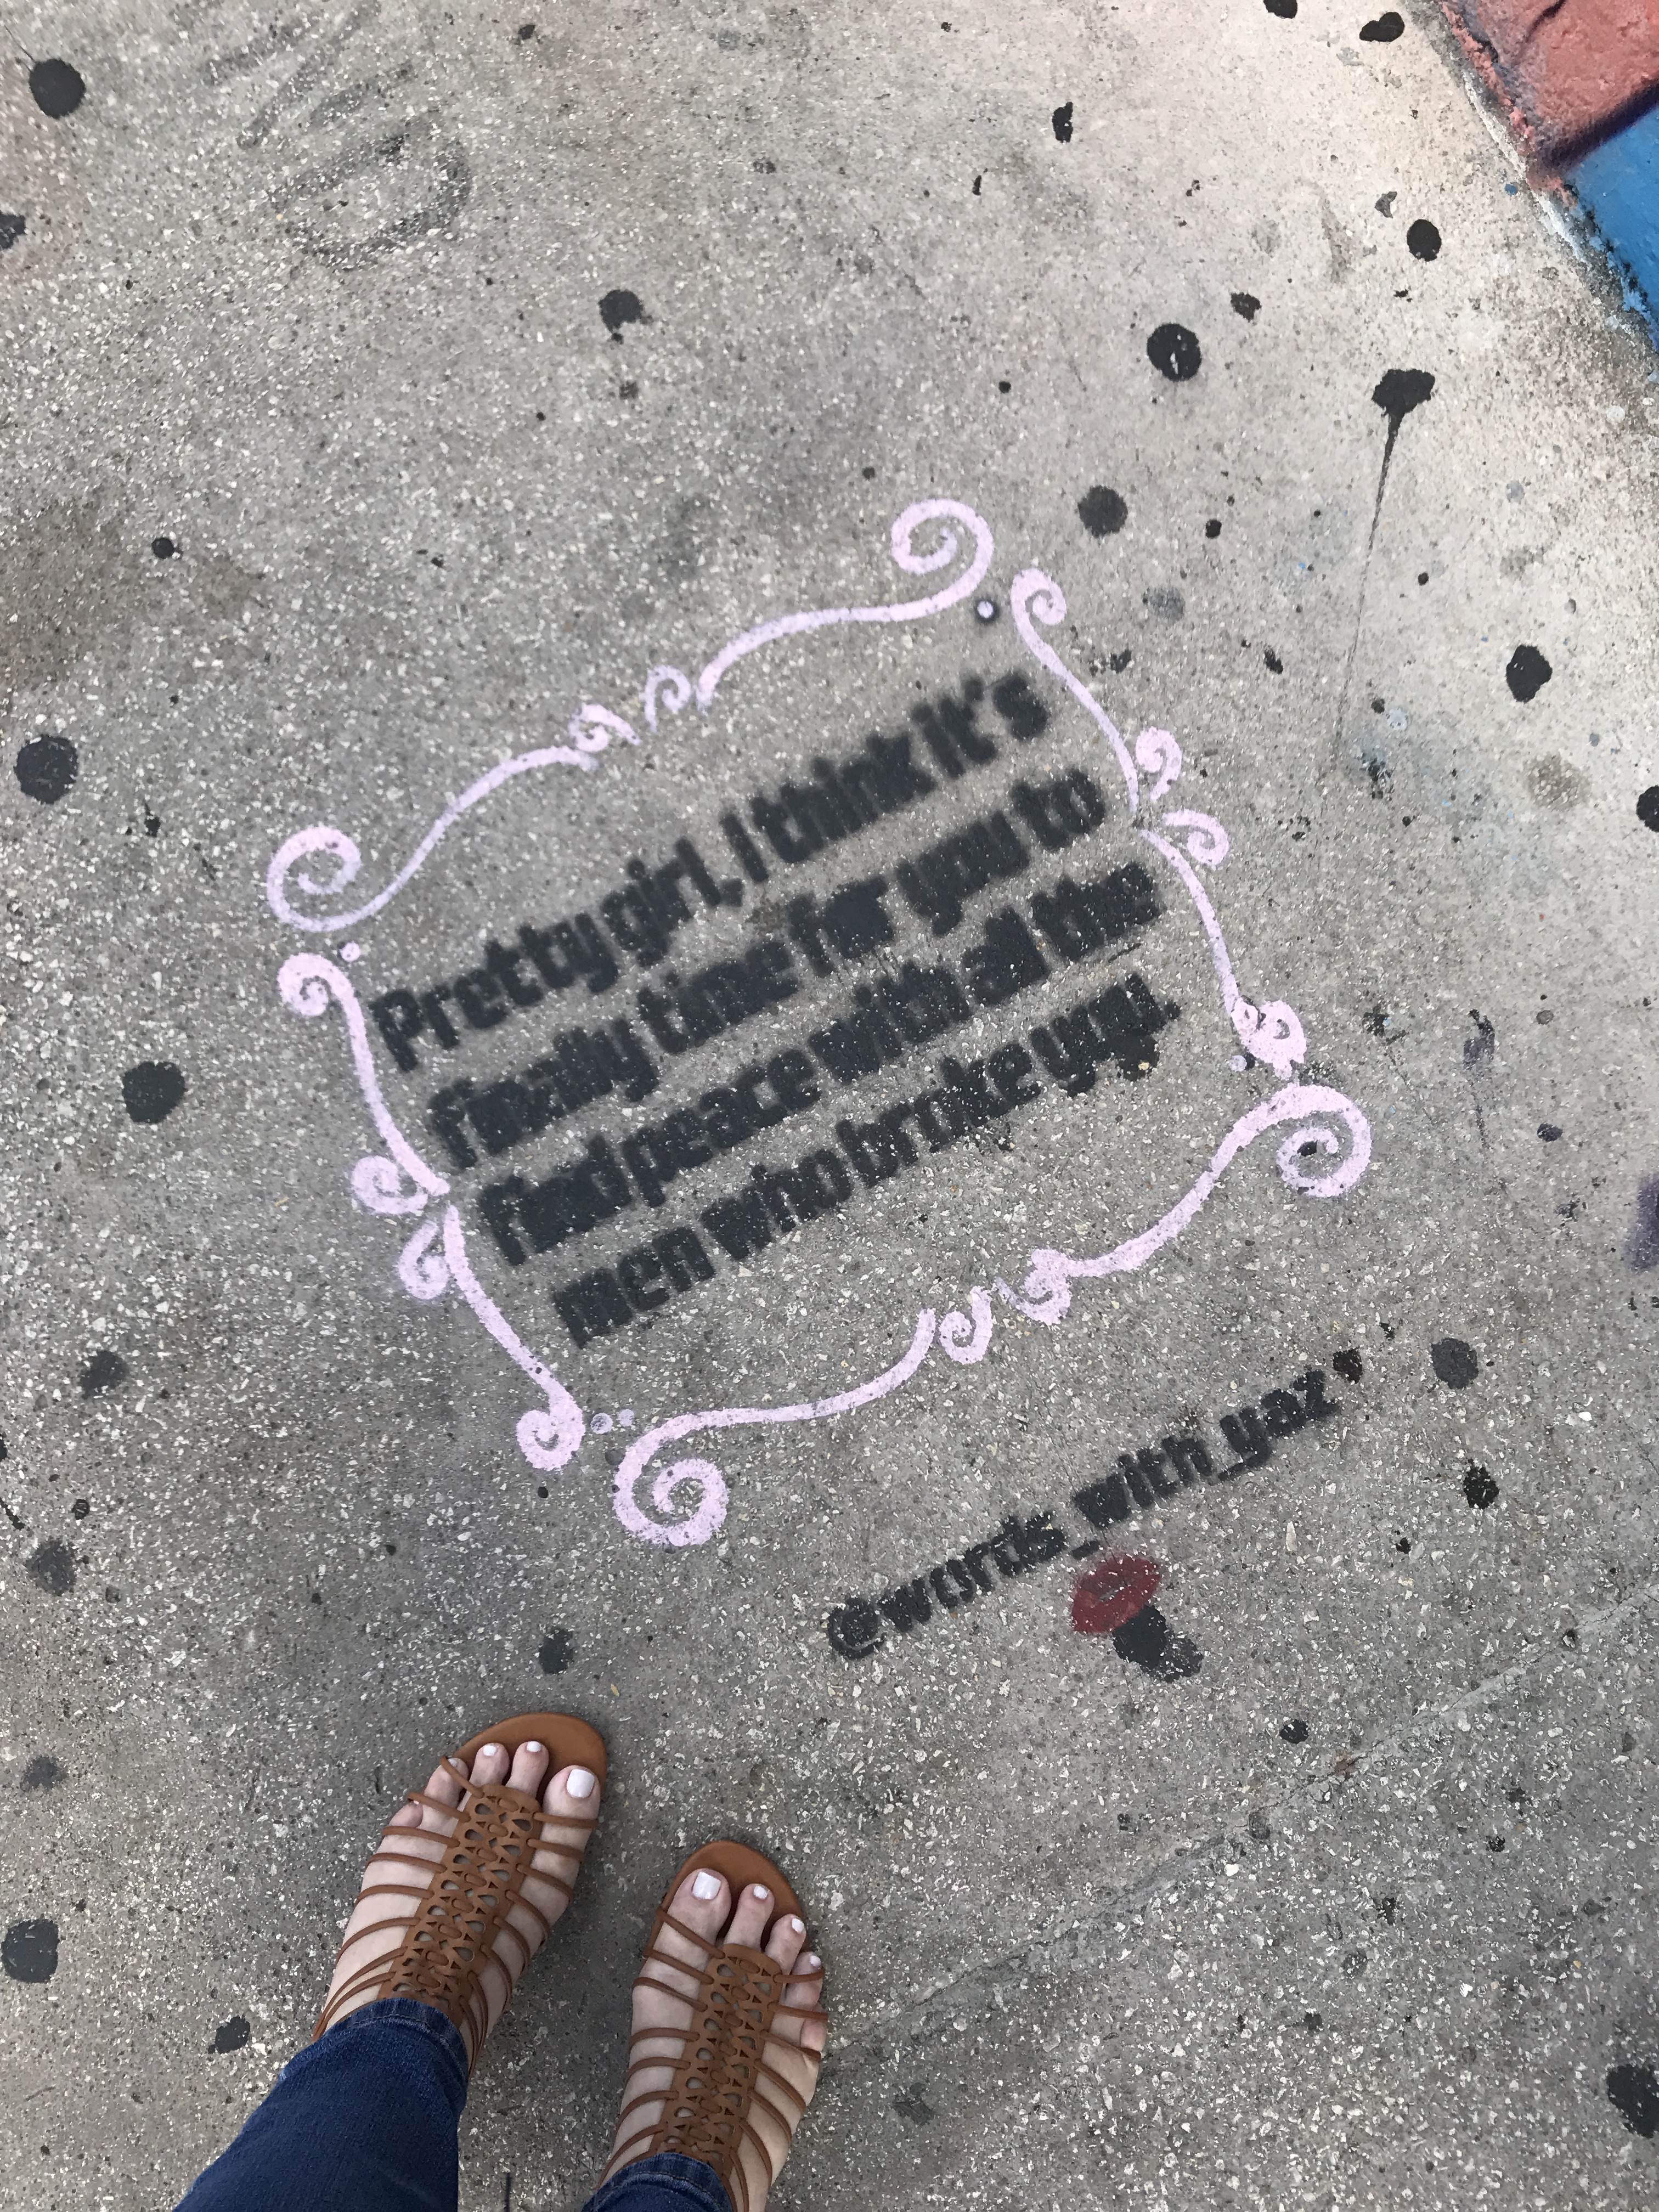 Pretty girl, I think it's
finally time for you to
find peace with all the
men who broke you.
@words_with_yaz